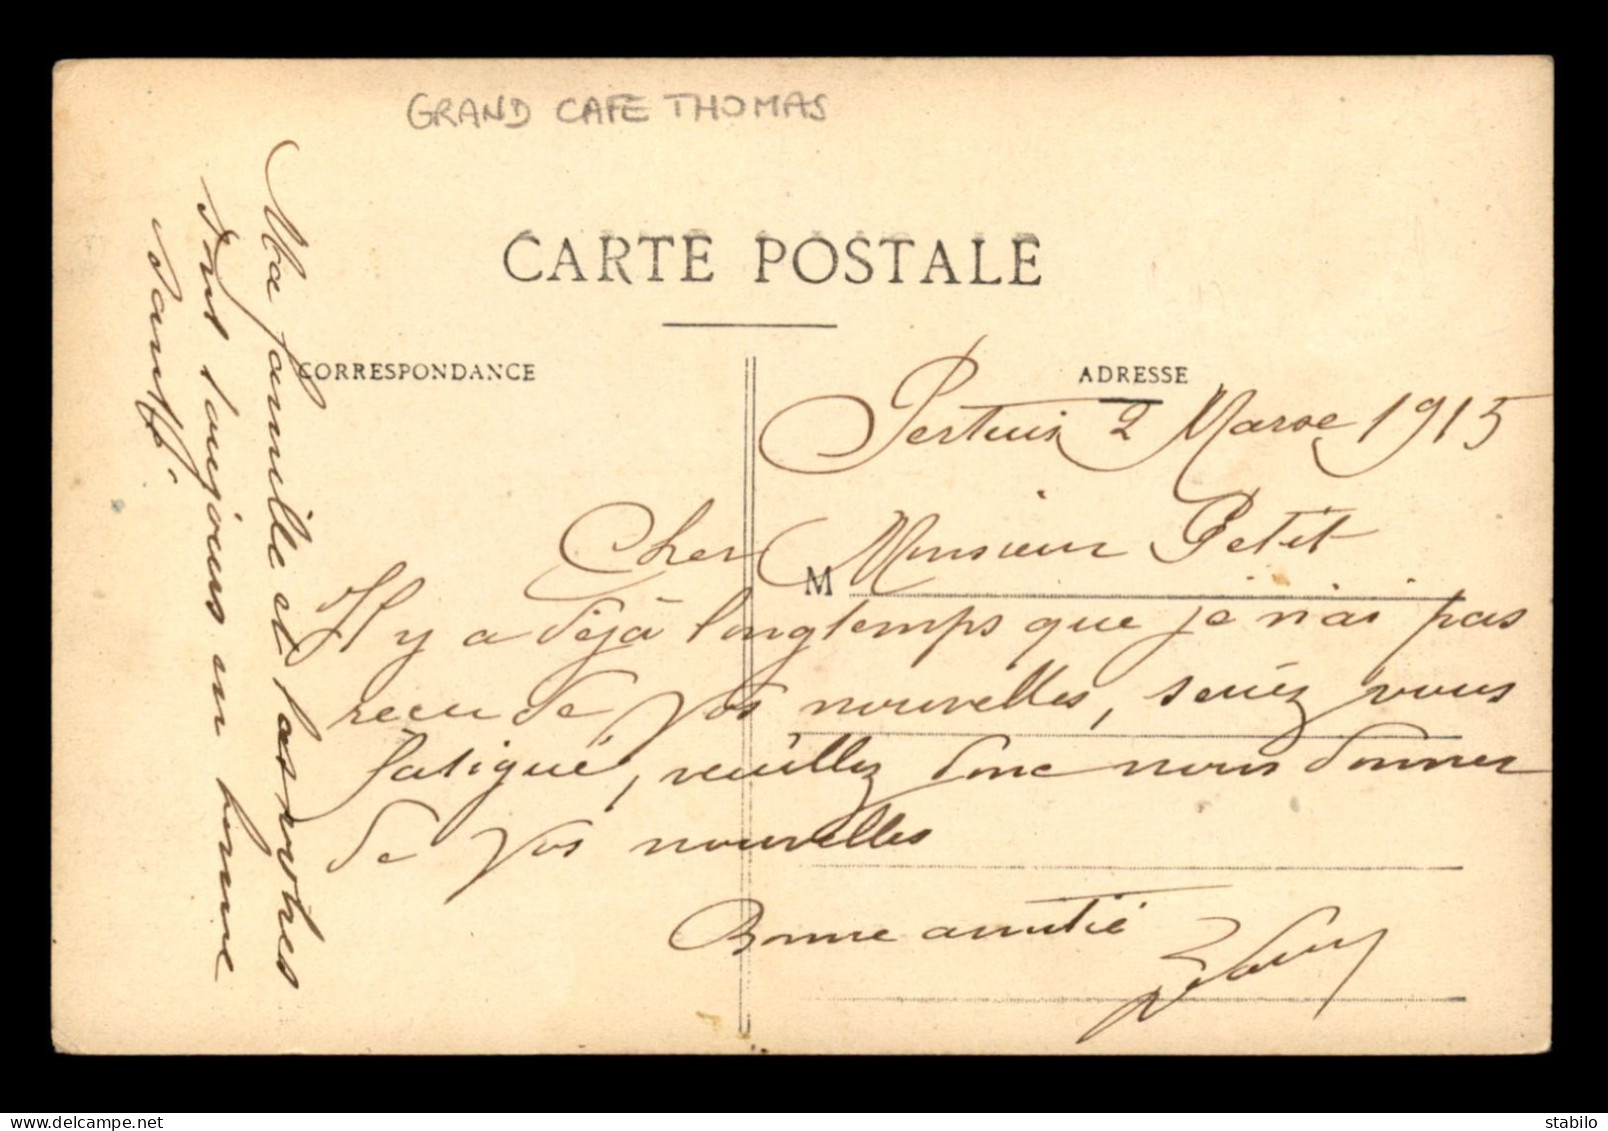 GRAND CAFE THOMAS
CARTE POSTALE
CORRESPONDANCE
ADRESSE
Pertuis 2 Mars 1915
M
Cher Monsieur Petit
Il y a déjà longtemps que je n'ai pas
recu de Vos nouvelles, seriez vous
fatigué, veuillez donc nous donner
de Vos nouvelles
Bonne amitié
Ma famille et las notres
sont toujours en bonne
santé.
stabilo
delcampe.net